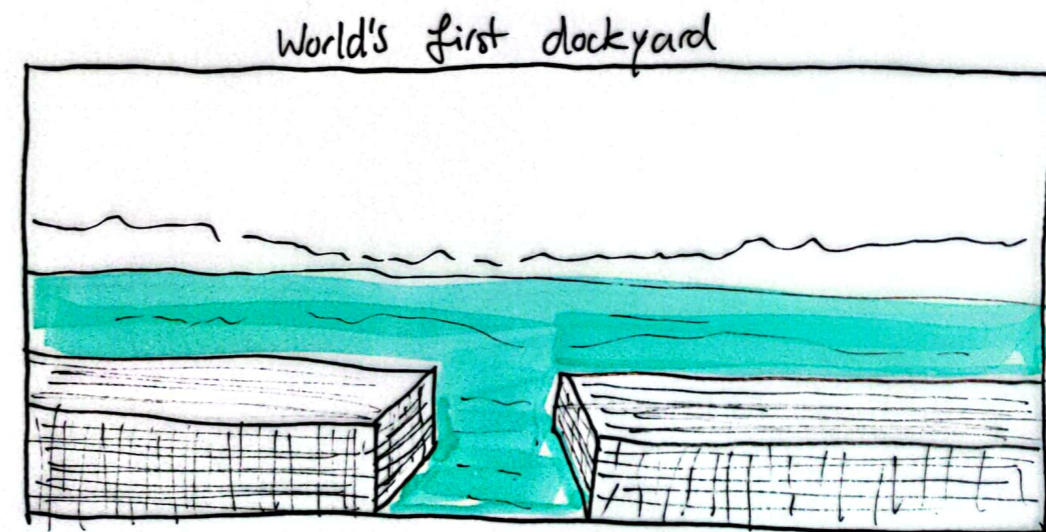 World's first dockyard